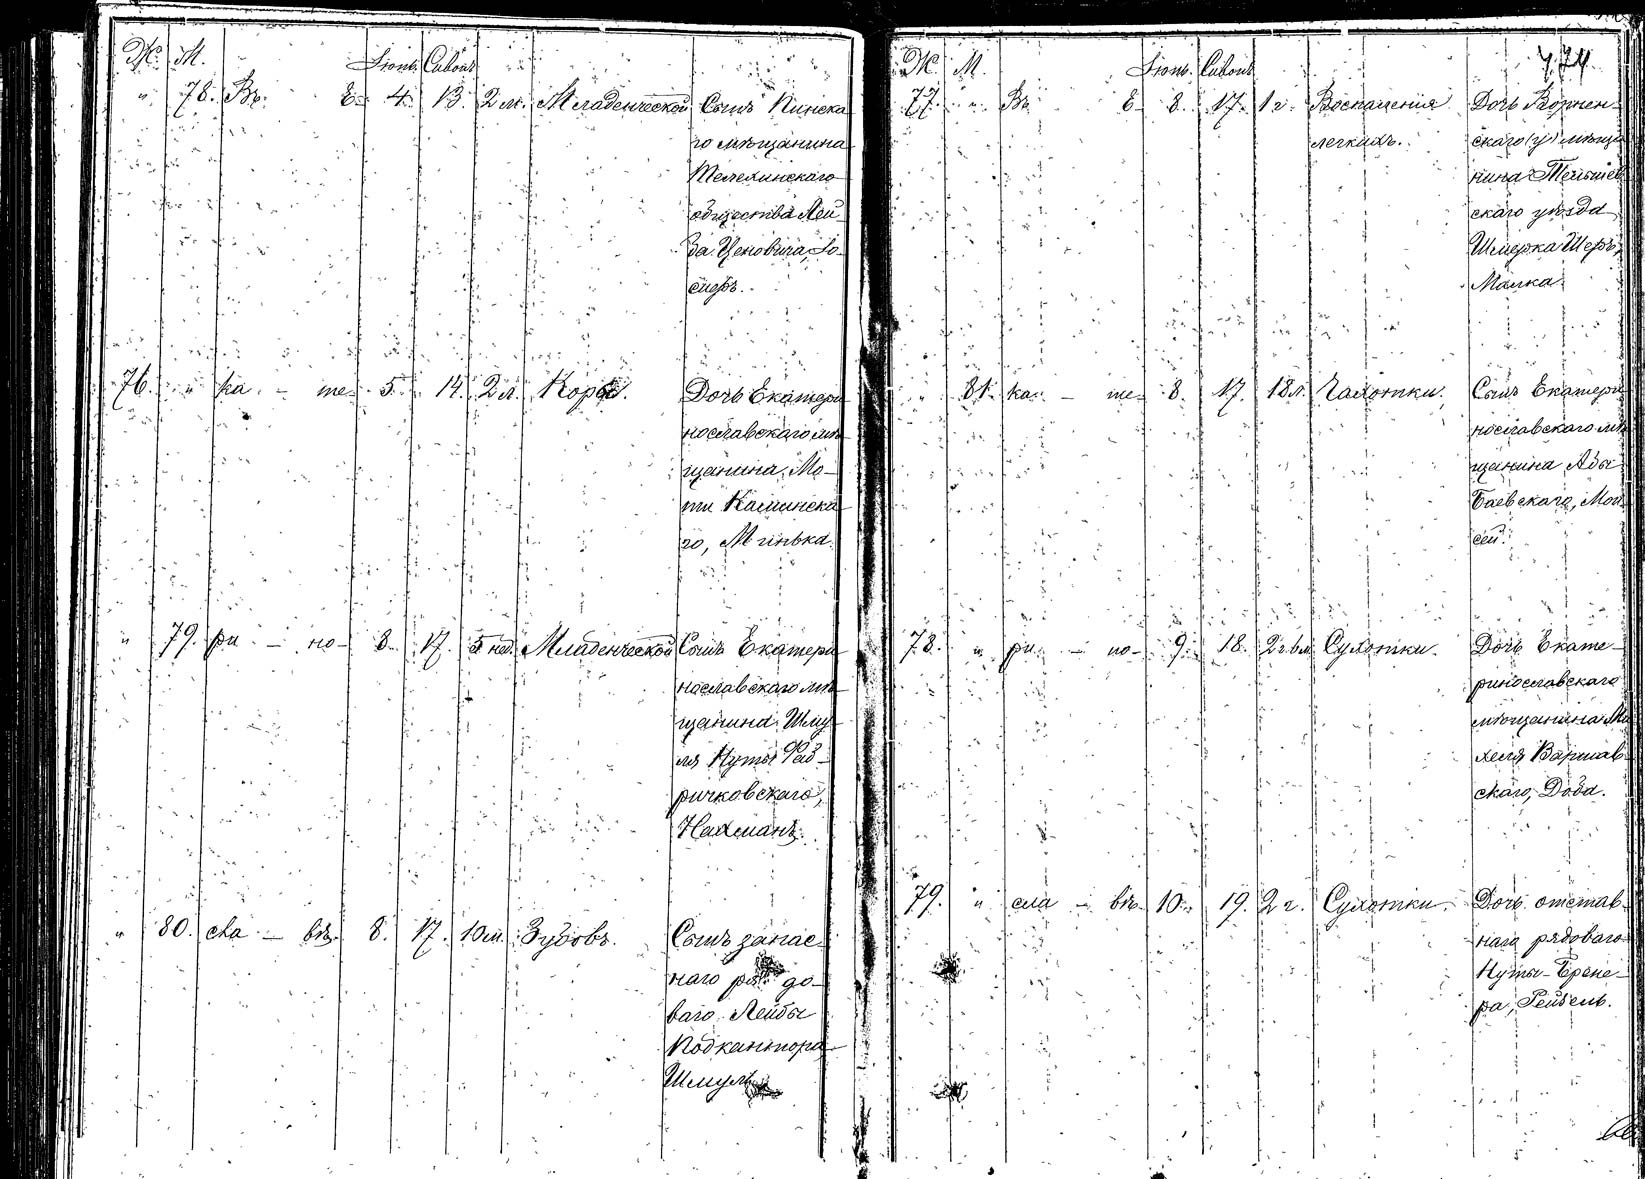 Ж. М. Іюнь. Сивонъ
" 78. Въ Е- 4. 13. 2 м. Младенческой Сынъ Пинска-
го мѣщанина
Телеханскаго
общества Лей-
Іо-
сифъ.
76. " ка - те- 5. 14. 2 л. Корь. Дочь Екатери-
нославскаго мѣ-
щанина Мо-
ти Каминска-
го, Минька.
" 79. ри - но- 8. 17. 5 нед. Младенческой Сынъ Екатери-
нославскаго мѣ-
щанина Шму-
ля Нуты
Нахманъ.
" 80. сла - вѣ. 8. 17. 10 м. Зубовъ. Сынъ запас-
наго рядо-
ваго Лейбы
Подкантора
Шмуль
Ж. М. Іюнь. Сивонъ
77. " Въ Е- 8. 17. 1 г. Воспаленія Дочь Ворнен-
легкихъ. скаго (у) мѣща-
нина Тельшев-
скаго уѣзда
Шмерка Шеръ,
Малка.
" 81. ка - те- 8. 17. 18 л. Чахотки. Сынъ Екатери-
нославскаго мѣ-
щанина Абы
Баевскаго, Мои-
сей.
78. " ри - но- 9. 18. Сухотки. Дочь Екате-
ринославскаго
мѣщанина Ми-
хеля Варшав-
скаго, Доба.
79. " сла - вѣ. 10. 19. 2 г. Сухотки. Дочь отстав-
наго рядоваго
Нуты Брене-
ра, Рейзель.